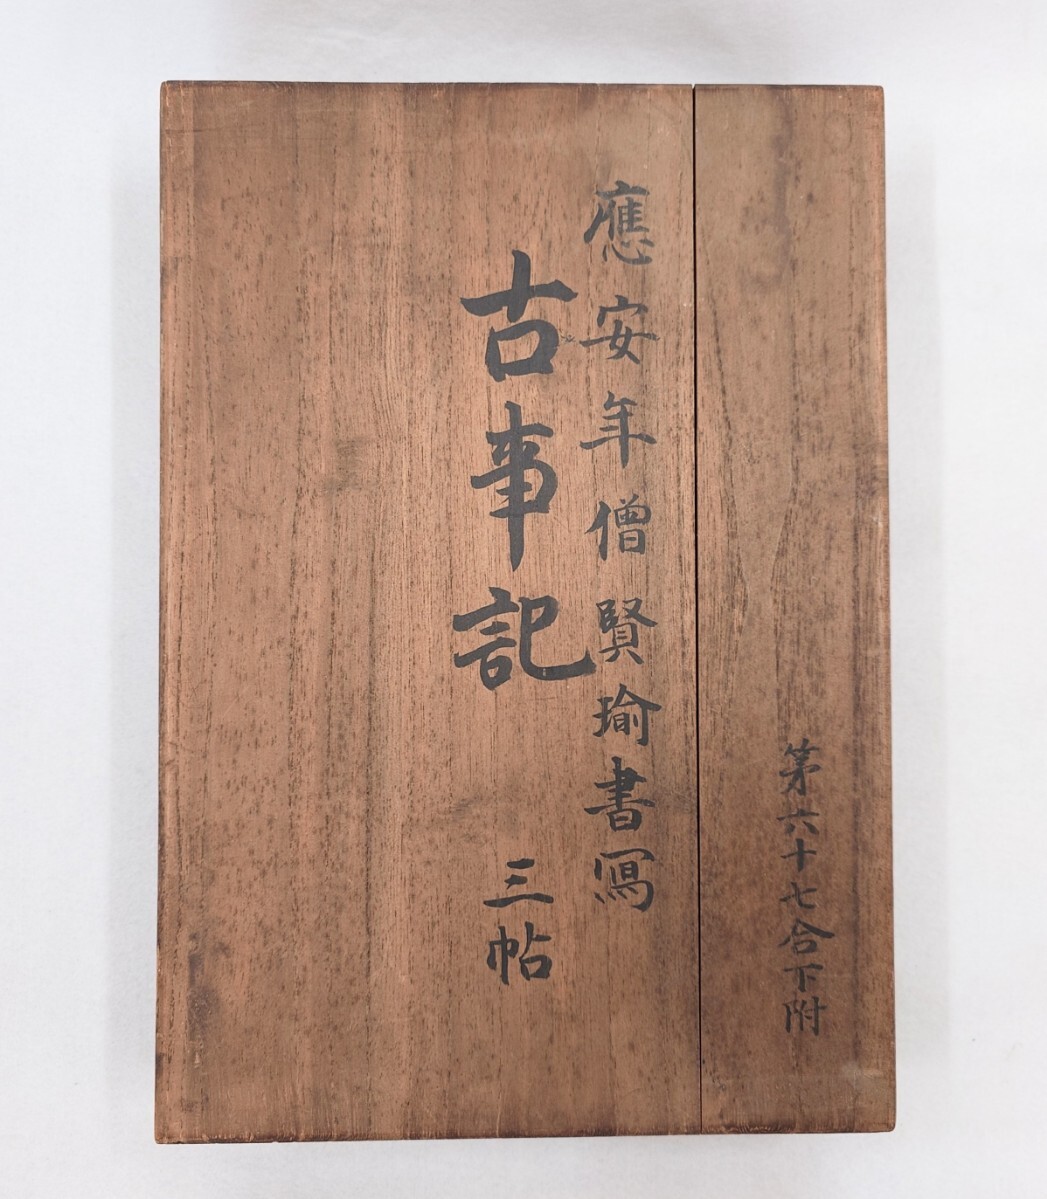 第六十七合下附
應安年僧賢瑜書冩
古事記 三帖